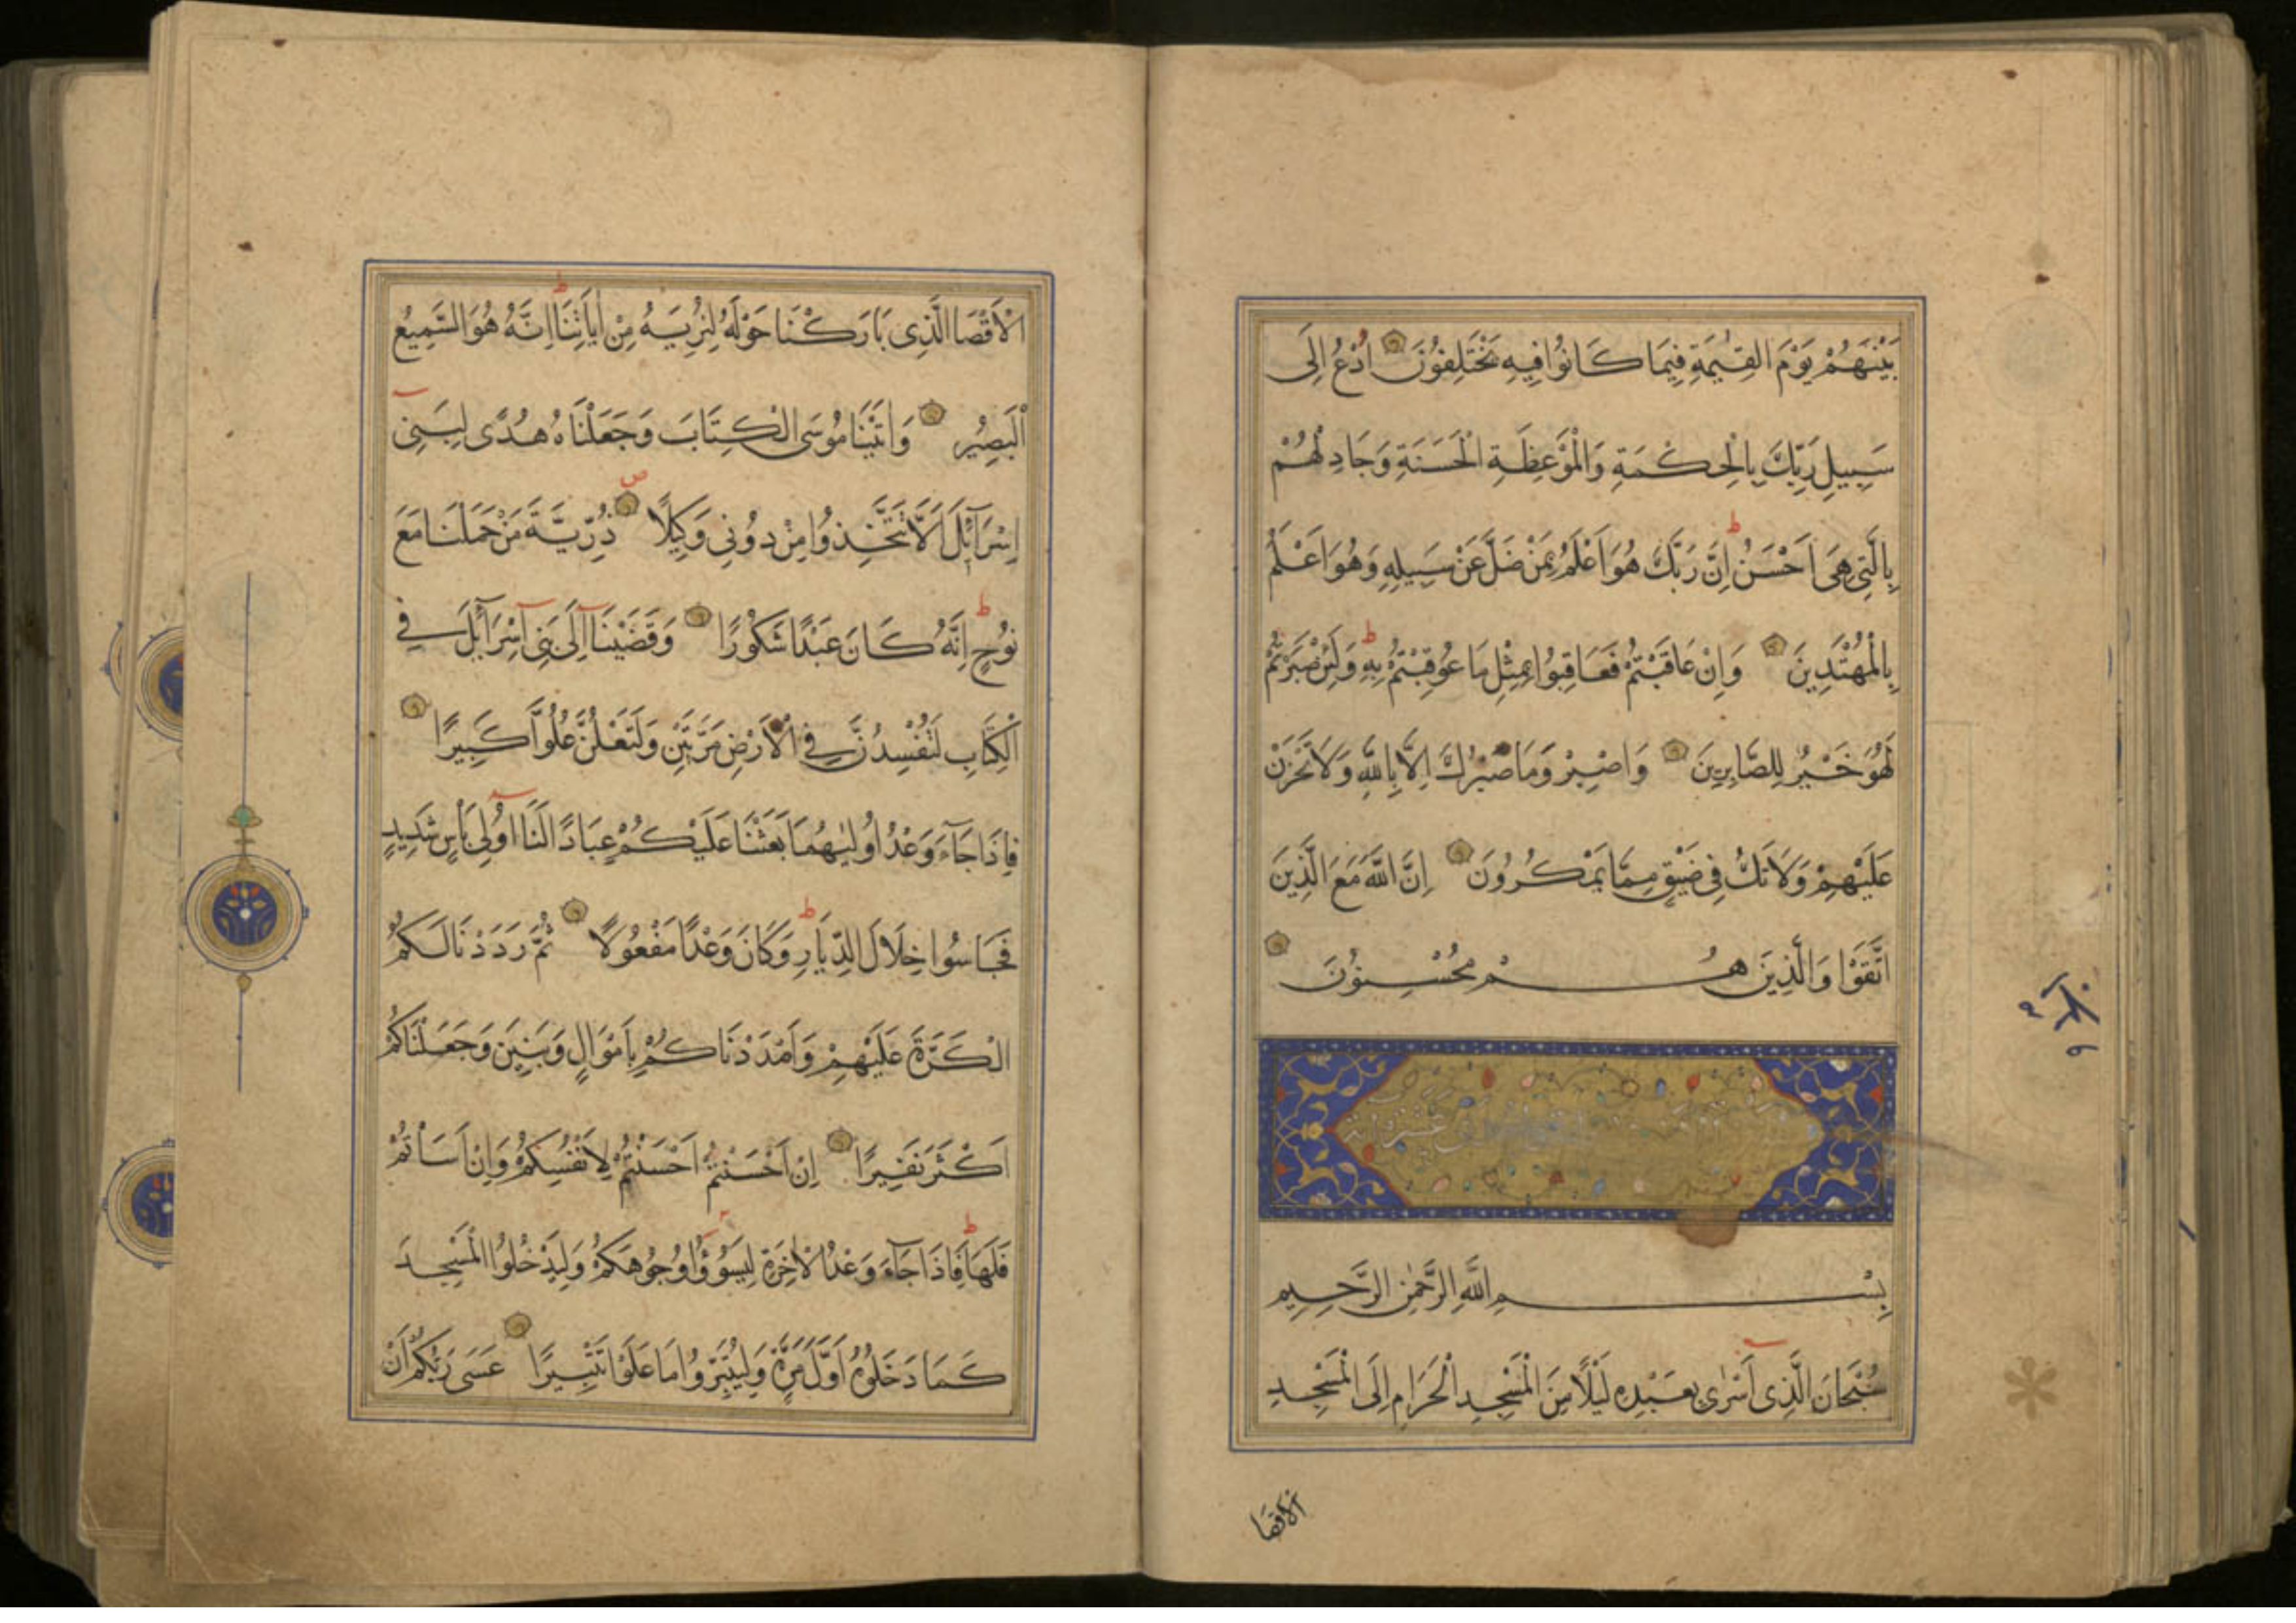 بَيْنَهُمْ يَوْمَ الْقِيٰمَةِ فِيمَا كَانُوا فِيهِ يَخْتَلِفُونَ اُدْعُ اِلَى
سَبِيلِ رَبِّكَ بِالْحِكْمَةِ وَالْمَوْعِظَةِ الْحَسَنَةِ وَجَادِلْهُمْ
بِالَّتِي هِيَ اَحْسَنُ ط اِنَّ رَبَّكَ هُوَ اَعْلَمُ بِمَنْ ضَلَّ عَنْ سَبِيلِهِ وَهُوَ اَعْلَمُ
بِالْمُهْتَدِينَ وَاِنْ عَاقَبْتُمْ فَعَاقِبُوا بِمِثْلِ مَا عُوقِبْتُمْ بِهِ ط وَلَئِنْ صَبَرْتُمْ
لَهُوَ خَيْرٌ لِلصَّابِرِينَ وَاصْبِرْ وَمَا صَبْرُكَ اِلَّا بِاللّٰهِ وَلَا تَحْزَنْ
عَلَيْهِمْ وَلَا تَكُ فِي ضَيْقٍ مِمَّا يَمْكُرُونَ اِنَّ اللّٰهَ مَعَ الَّذِينَ
اتَّقَوْا وَالَّذِينَ هُمْ مُحْسِنُونَ
بِسْمِ اللّٰهِ الرَّحْمٰنِ الرَّحِيمِ
سُبْحَانَ الَّذِي اَسْرٰى بِعَبْدِهِ لَيْلًا مِنَ الْمَسْجِدِ الْحَرَامِ اِلَى الْمَسْجِدِ
الاقصا
الْاَقْصَا الَّذِي بَارَكْنَا حَوْلَهُ لِنُرِيَهُ مِنْ اٰيَاتِنَا ط اِنَّهُ هُوَ السَّمِيعُ
الْبَصِيرُ وَاٰتَيْنَا مُوسَى الْكِتَابَ وَجَعَلْنَاهُ هُدًى لِبَنِي
اِسْرَآئِلَ اَلَّا تَتَّخِذُوا مِنْ دُونِي وَكِيلًا ص ذُرِّيَّةَ مَنْ حَمَلْنَا مَعَ
نُوحٍ ط اِنَّهُ كَانَ عَبْدًا شَكُورًا وَقَضَيْنَا اِلَى بَنِي اِسْرَآئِلَ فِي
الْكِتَابِ لَتُفْسِدُنَّ فِي الْاَرْضِ مَرَّتَيْنِ وَلَتَعْلُنَّ عُلُوًّا كَبِيرًا
فَاِذَا جَآءَ وَعْدُ اُولٰيهُمَا بَعَثْنَا عَلَيْكُمْ عِبَادًا لَنَا اُولِي بَأْسٍ شَدِيدٍ
فَجَاسُوا خِلَالَ الدِّيَارِ ط وَكَانَ وَعْدًا مَفْعُولًا ثُمَّ رَدَدْنَا لَكُمُ
الْكَرَّةَ عَلَيْهِمْ وَاَمْدَدْنَاكُمْ بِاَمْوَالٍ وَبَنِينَ وَجَعَلْنَاكُمْ
اَكْثَرَ نَفِيرًا اِنْ اَحْسَنْتُمْ اَحْسَنْتُمْ لِاَنْفُسِكُمْ وَاِنْ اَسَأْتُمْ
فَلَهَا ط فَاِذَا جَآءَ وَعْدُ الْاٰخِرَةِ لِيَسُوؤُا وُجُوهَكُمْ وَلِيَدْخُلُوا الْمَسْجِدَ
كَمَا دَخَلُوهُ اَوَّلَ مَرَّةٍ وَلِيُتَبِّرُوا مَا عَلَوْا تَتْبِيرًا عَسَى رَبُّكُمْ اَنْ